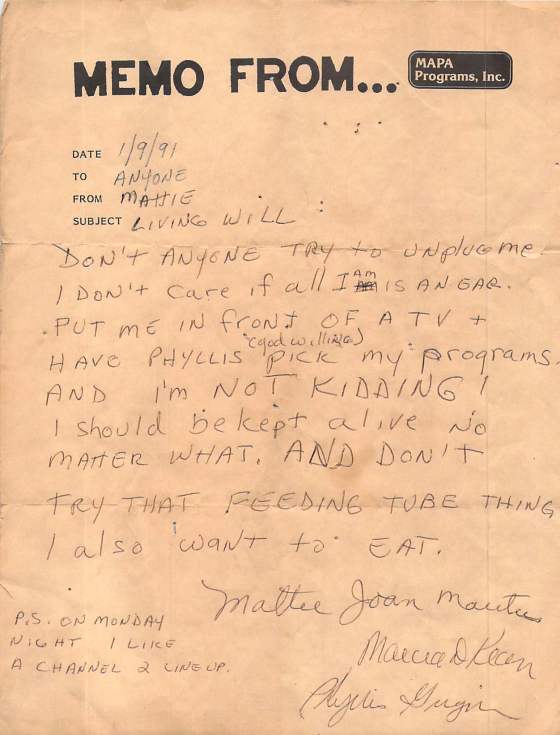 MEMO FROM...
MAPA
Programs, Inc.
DATE 1/9/91
TO ANYONE
FROM MATTIE
SUBJECT LIVING WILL
DON'T ANYONE TRY to UNPLUG me
I DON'T Care if all I AM IS AN EAR.
PUT ME IN front OF A TV +
(god willing)
HAVE PHYLLIS PICK my programs.
AND I'm NOT KIDDING!
I should be kept alive NO
MATTER WHAT. AND DON'T
TRY THAT FEEDING TUBE THING
I also want to EAT.
Mattie Joan
Marcia D
Phyllis
P.S. ON MONDAY
NIGHT I LIKE
A CHANNEL 2 LINEUP.